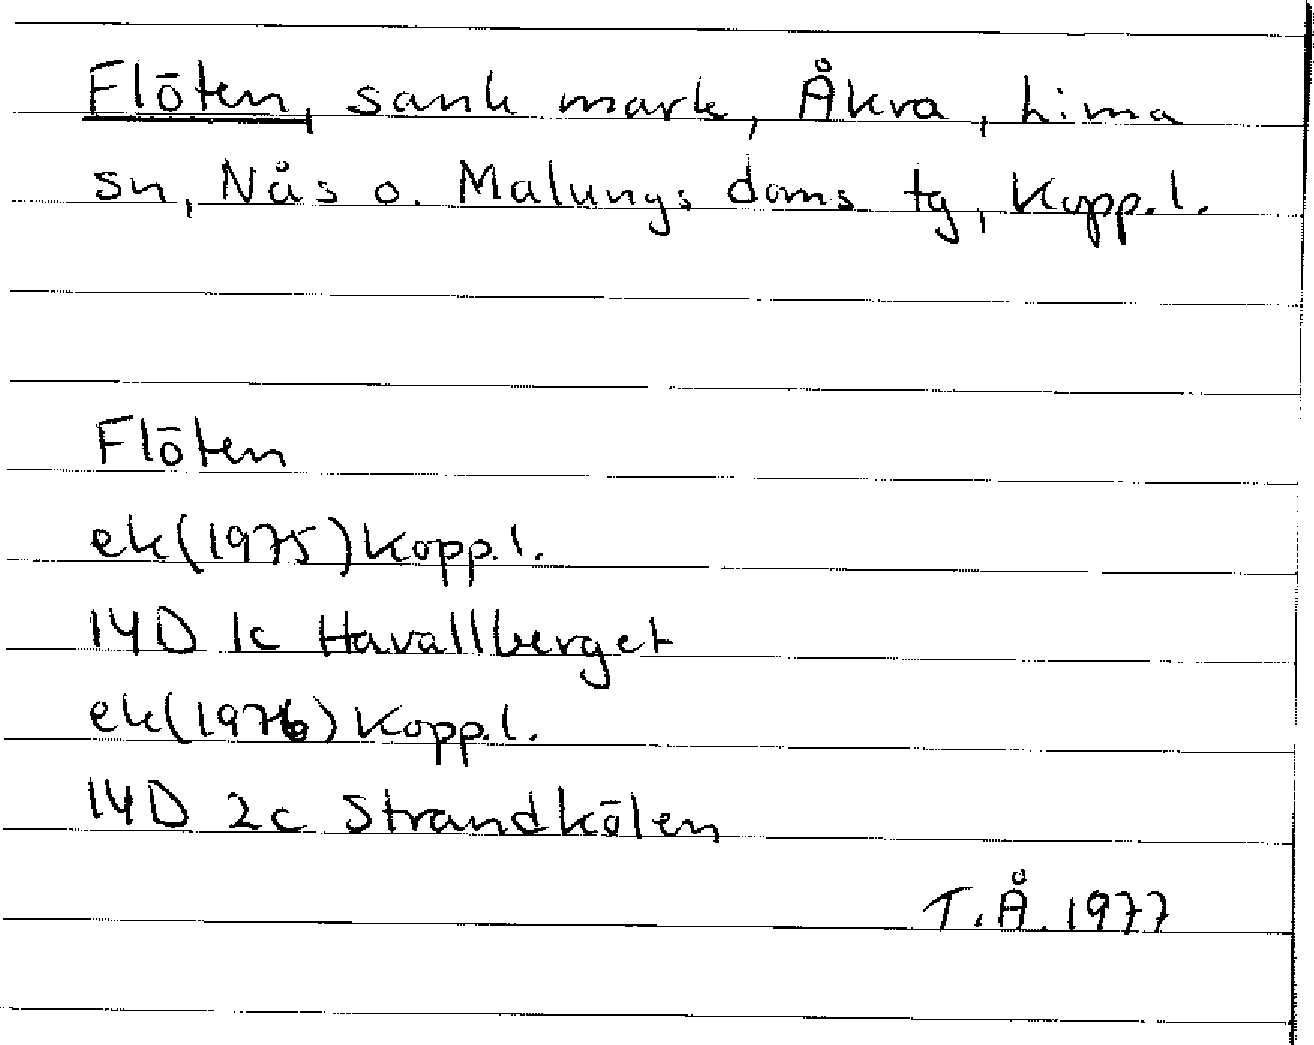 Flöten, sank mark, Åkra, Lima
sn, Nås o. Malungs doms tg, Kopp.l.
Flöten
ek(1975)Kopp.l.
14D 1c Havallberget
ek(1976)Kopp.l.
14D 2c Strandkölen
T.Å. 1977